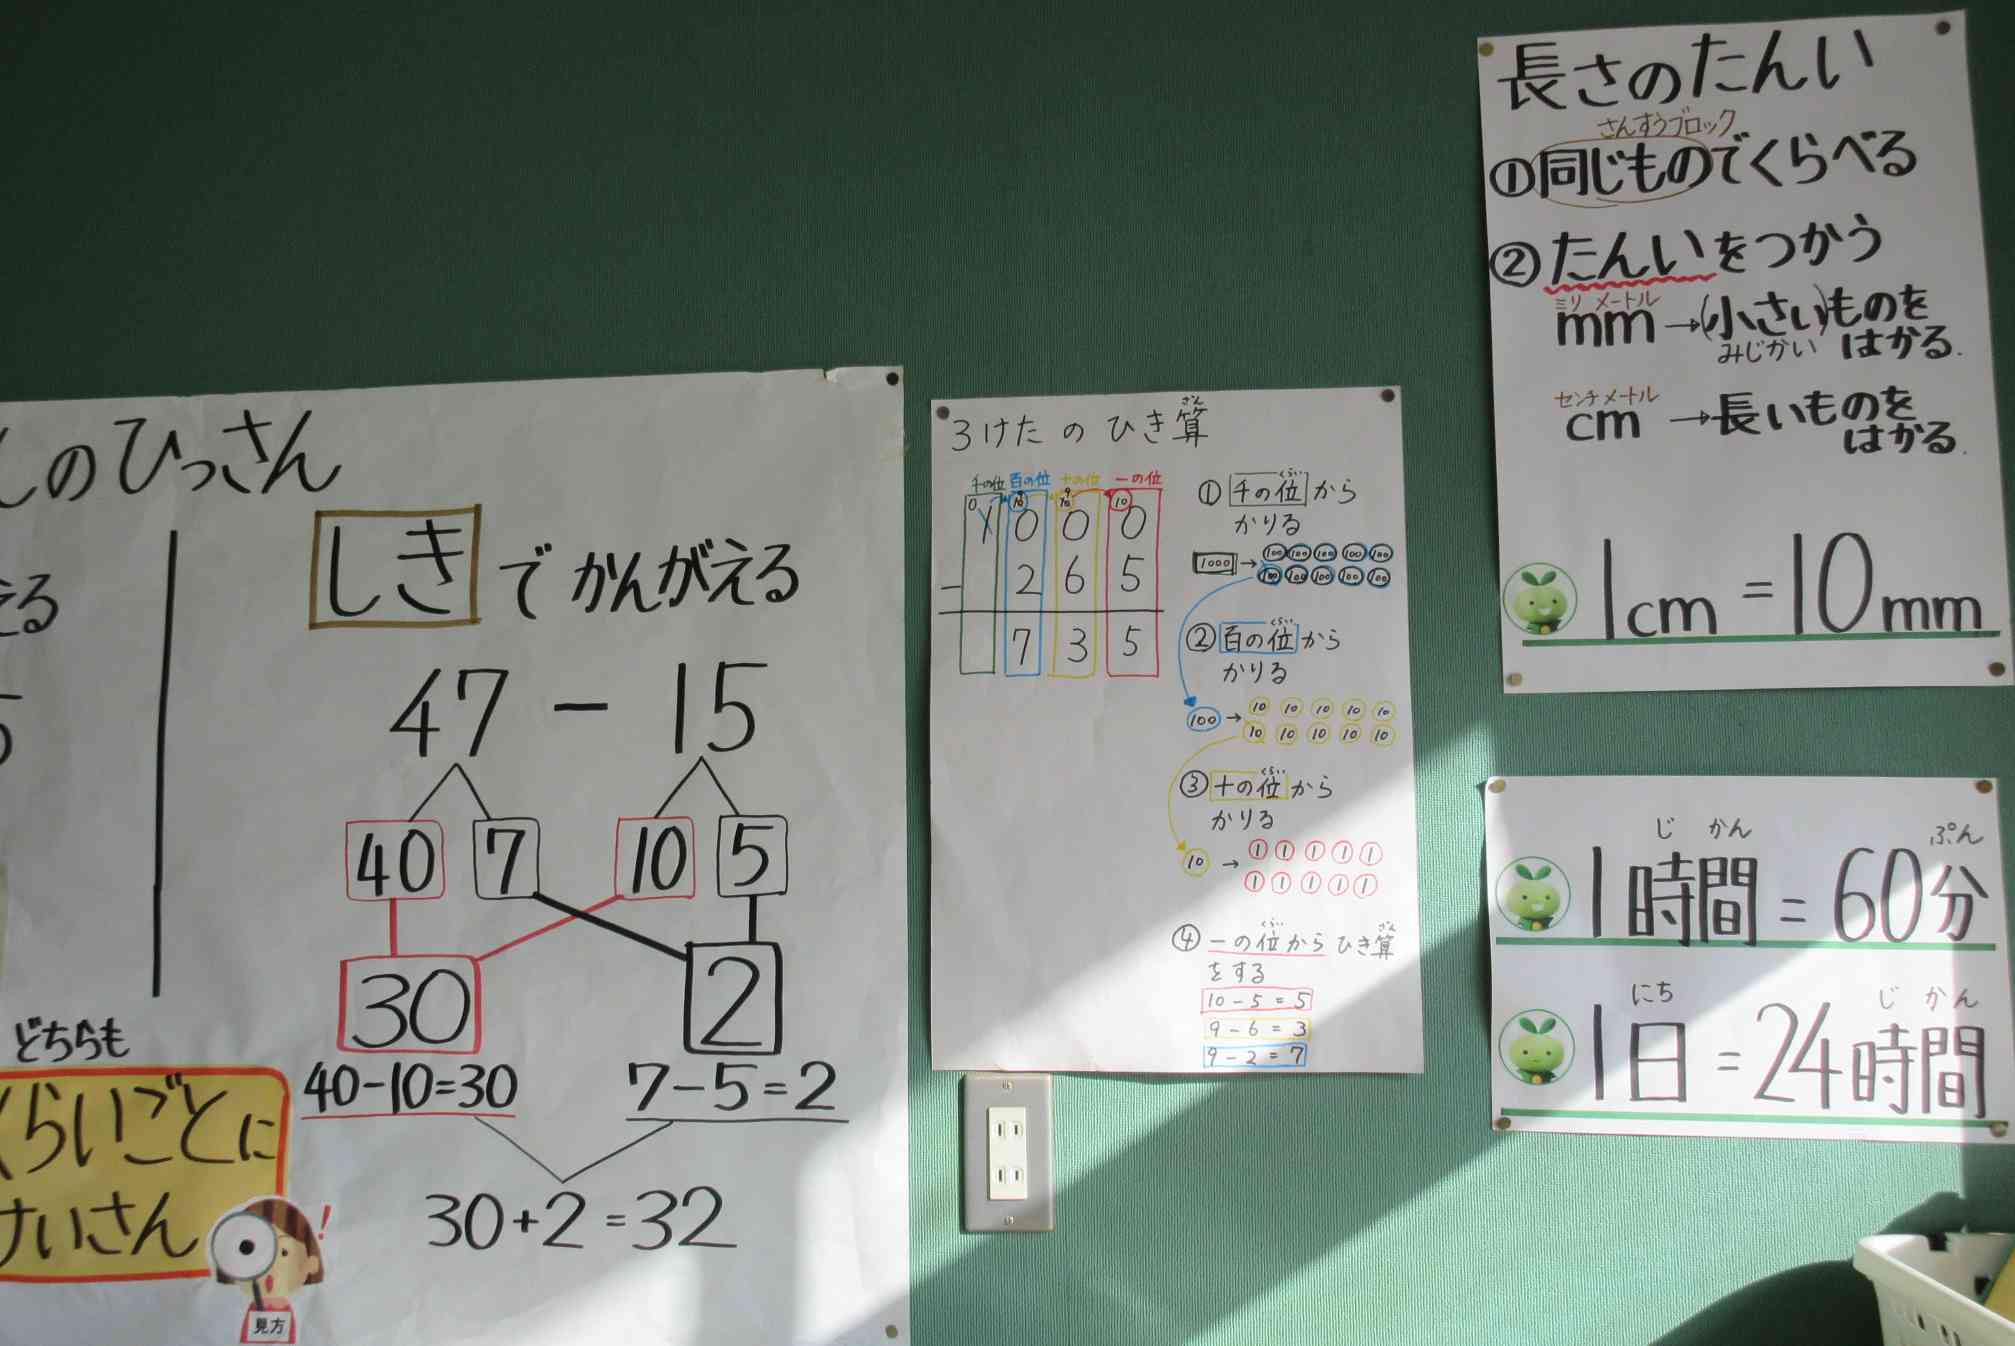 しのひっさん
える
しきでかんがえる
47 - 15
40 7 10 5
30 2
40-10=30 7-5=2
30+2=32
どちらも
くらいごとに
けいさん
!
見方
3けたのひき算
さん
千の位 百の位 十の位 一の位
0 9 10 9 10 10
1 0 0 0
- 2 6 5
7 3 5
くらい
①千の位から
かりる
1000→100 100 100 100 100
100 100 100 100 100
くらい
②百の位から
かりる
100→10 10 10 10 10
10 10 10 10 10
くらい
③十の位から
かりる
10→1 1 1 1 1
1 1 1 1 1
くらい ざん
④一の位からひき算
をする
10-5=5
9-6=3
9-2=7
長さのたんい
さんすうブロック
①同じものでくらべる
②たんいをつかう
ミリ メートル
mm→(小さい)ものを
みじかい はかる.
センチメートル
cm→長いものを
はかる.
1cm=10mm
じ かん ぷん
1時間=60分
にち じ かん
1日=24時間